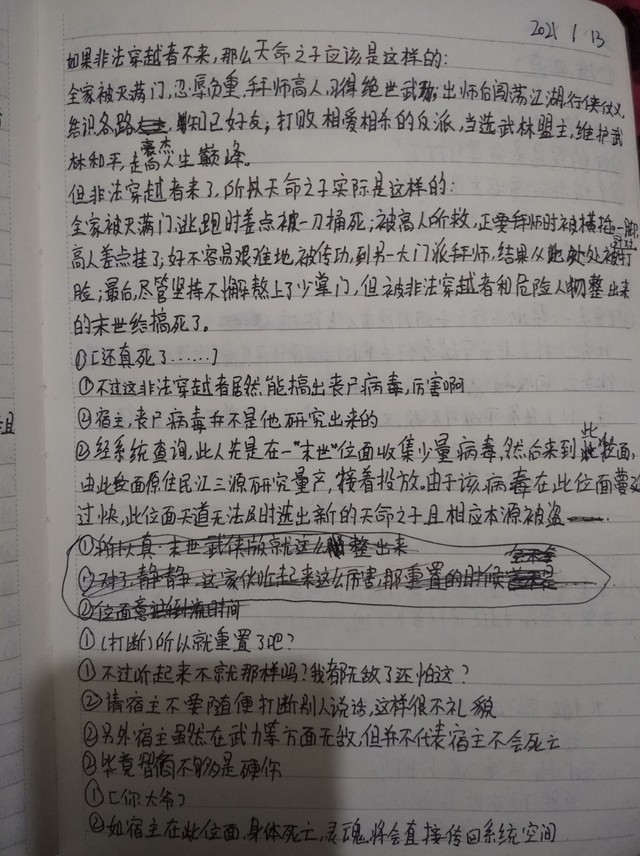 2021 / 13
如果非法穿越者不来,那么天命之子应该是这样的:
全家被灭满门,忍辱负重,拜师高人,习得绝世武功;出师后闯荡江湖,行侠仗义
结识各路豪杰,知己好友;打败相爱相杀的反派,当选武林盟主,维护武
林和平,走向人生巅峰。
但非法穿越者来了,所以天命之子实际是这样的:
全家被灭满门,逃跑时差点被一刀捅死;被高人所救,正要拜师时被横插一脚
高人差点挂了;好不容易艰难地被传功,到另一大门派拜师,结果从此处处被打
脸;最后,尽管坚持不懈熬上了少掌门,但被非法穿越者和危险人物整出来
的末世给搞死了。
①[还真死了……]
①不过这非法穿越者居然能搞出丧尸病毒,厉害啊
②宿主,丧尸病毒并不是他研究出来的
②经系统查询,此人先是在一"末世"位面收集少量病毒,然后来到此位面,
由此位面原住民江三源研究量产,接着投放。由于该病毒在此位面蔓延
过快,此位面天道无法及时选出新的天命之子且相应本源被盗
①所以真·末世武侠版就这么整出来
①对了静静,这家伙听起来这么厉害,那重置的时候会不会
②位面意识倒流时间
①(打断)所以就重置了吧?
①不过听起来不就那样吗?我都无敌了还怕这?
②请宿主不要随便打断别人说话,这样很不礼貌
②另外宿主虽然在武力等方面无敌,但并不代表宿主不会死亡
②毕竟智商不够是硬伤
①[你大爷]
②如宿主在此位面,身体死亡,灵魂将会直接传回系统空间